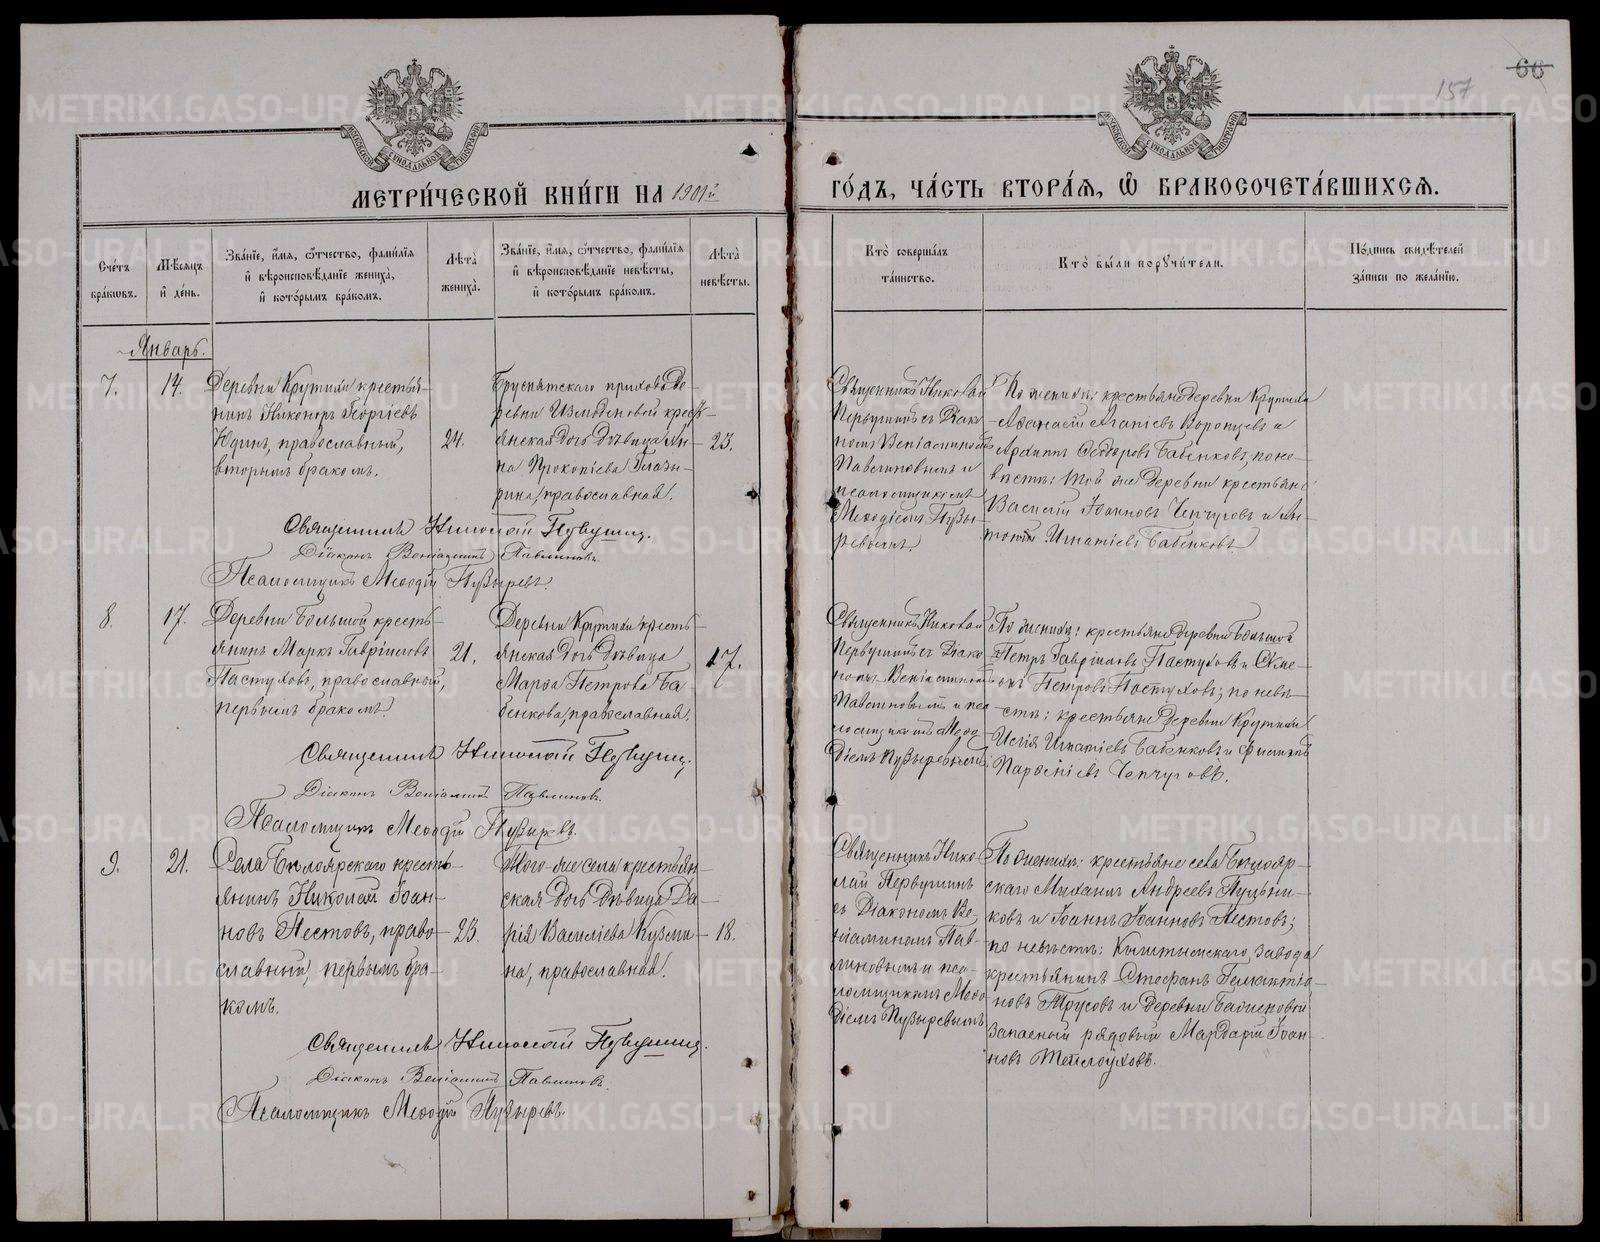 157
66
МОСКОВСКОЙ СУНОДАЛЬНОЙ ТИПОГРАФІИ
МОСКОВСКОЙ СУНОДАЛЬНОЙ ТИПОГРАФІИ
МЕТРИ́ЧЕСКОЙ КНИ́ГИ НА 1901й
ГО́ДЪ, ЧА́СТЬ ВТОРА́Я, Ѿ БРАКОСОЧЕТА́ВШИХСЯ.
Сче́тъ
бра́кѡвъ.
Мѣ́сяцъ
и҆ де́нь.
Зва́нїе, и҆́мя, ѻ҆́тчество, фамилїя
и҆ вѣроисповѣ́данїе жениха̀,
и҆ кото́рымъ бра́комъ.
Лѣта̀
жениха̀.
Зва́нїе, и҆́мя, ѻ҆́тчество, фамилїя
и҆ вѣроисповѣ́данїе невѣ́сты,
и҆ кото́рымъ бра́комъ.
Лѣта̀
невѣ́сты.
Кто̀ соверша́лъ
та́инство.
Кто̀ бы́ли поручи́тели.
По́дпись свидѣ́телей
за́писи по жела́нїю.
Январь.
7.
14.
Деревни Крутихи крестья-
нинъ Никоноръ Георгіевъ
Юдинъ, православный,
вторымъ бракомъ.
24.
Бруснятскаго прихода де-
ревни Измоденовой кресть-
янская дочь девица Ан-
на Прокопіева Глазы-
рина, православная.
23.
Священникъ Николай
Первушинъ съ Діако-
номъ Веніаминомъ
Павлиновымъ и
псаломщикомъ
Меѳодіемъ Пузы-
ревымъ.
По женихѣ: крестьяне деревни Крутихи
Аѳанасій Агапіевъ Воронцовъ и
Архипъ Ѳедоровъ Бабенковъ; по не-
вѣстѣ: той же деревни крестьяне
Василій Іоанновъ Чепчуговъ и Ан-
тоній Игнатіевъ Бабенковъ
Священникъ Николай Первушин.
Діаконъ Веніаминъ Павлиновъ.
Псаломщикъ Меѳодій Пузыревъ.
8.
17.
Деревни Большой кресть-
янинъ Маркъ Гавріиловъ
Пастуховъ, православный,
первымъ бракомъ.
21.
Деревни Крутихи кресть-
янская дочь девица
Марѳа Петрова Ба-
бенкова, православная.
17.
Священникъ Николай
Первушинъ съ Діако-
номъ Веніаминомъ
Павлиновымъ и пса-
ломщикомъ Меѳо-
діемъ Пузыревымъ
По женихѣ: крестьяне деревни Большой
Петръ Гавріиловъ Пастуховъ и Симе-
онъ Петровъ Пастуховъ; по невѣ-
стѣ: крестьяне деревни Крутихи
Илія Игнатіевъ Бабенковъ и Филиппъ
Парѳеніевъ Чепчуговъ.
Священникъ Николай Первушин.
Діаконъ Веніаминъ Павлиновъ.
Псаломщикъ Меѳодій Пузыревъ.
9.
21.
Села Бѣлоярскаго кресть-
янинъ Николай Іоан-
новъ Пестовъ, право-
славный, первымъ бра-
комъ.
23.
Того же села крестьян-
ская дочь девица Да-
рія Василіева Кузми-
на, православная.
18.
Священникъ Нико-
лай Первушинъ
съ Діакономъ Ве-
ніаминомъ Пав-
линовымъ и пса-
ломщикомъ Меѳо-
діемъ Пузыревымъ
По женихѣ: крестьяне села Бѣлояр-
скаго Михаилъ Андреевъ Пузыни-
ковъ и Іоаннъ Іоанновъ Пестовъ;
по невѣстѣ: Кыштымскаго завода
крестьянинъ Стефанъ
новъ Трусовъ и деревни Бабиновой
запасный рядовый Мардарій Іоан-
новъ Теплоуховъ.
Священникъ Николай Первушин.
Діаконъ Веніаминъ Павлиновъ.
Псаломщикъ Меѳодій Пузыревъ.
METRIKI.GASO-URAL.RU